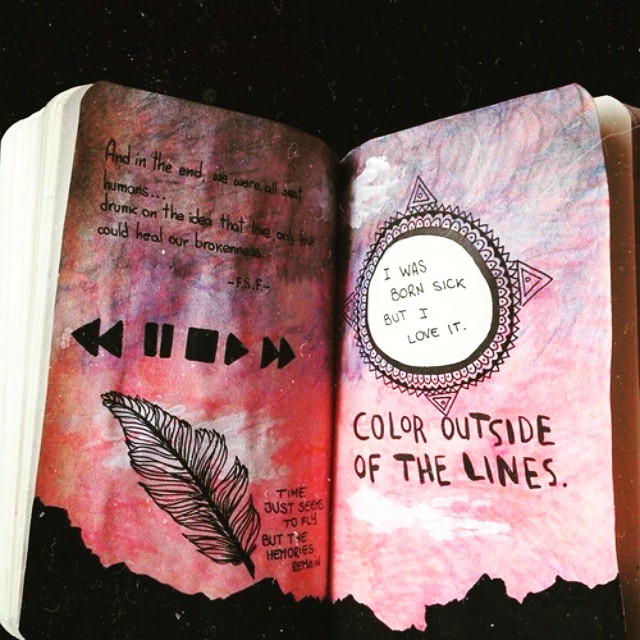 And in the end, we were all just
humans...
drunk on the idea that love, only love
could heal our brokenness.
-F.S.F.-
TIME
JUST SEEMS
TO FLY
BUT THE
MEMORIES
REMAIN
I WAS
BORN SICK
BUT I
LOVE IT.
COLOR OUTSIDE
OF THE LINES.